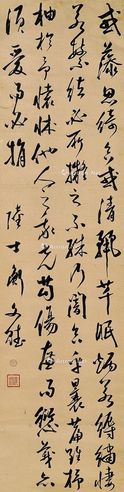 或藻思綺合或清麗芊眠炳若縟繡悽
若繁絃必所擬之不殊乃闇合乎曩篇雖杼
柚於予懷怵他人之我先苟傷廉而愆義亦
須愛而必捐 陸士衡文賦